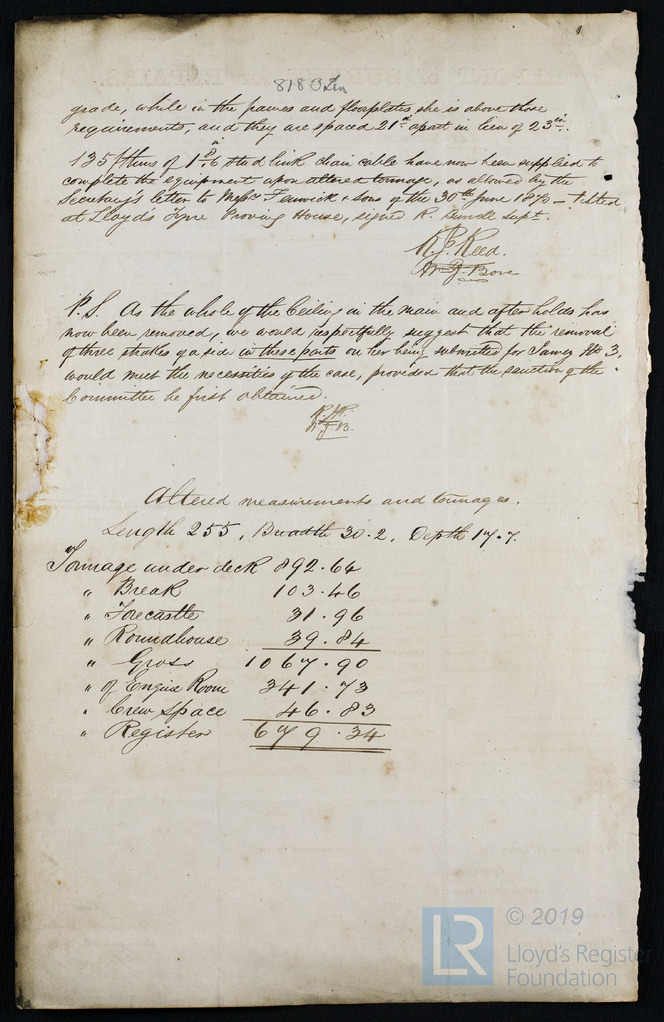 8183 Irn
grade, while in the frames and floorplates she is above those
requirements, and they are spaced 21 in apart in lieu of 23 in.
135 fthms of 1 8/16 in stud link chain cable have now been supplied to
complete the equipment upon altered tonnage, as allowed by the
Secretary's letter to Messrs Fenwick & Sons of the 30th June 1870 — tested
at Lloyd's Tyne Proving House, signed R. Supt.
R. J. Reed.
Wm J. Bone
P.S. As the whole of the Ceiling in the main and after holds has
now been removed, we would respectfully suggest that the removal
of three strakes of a side in these parts on her being submitted for Survey No 3,
would meet the necessities of the case, provided that the sanction of the
Committee be first obtained.
R.J.R.
W.J.B.
Altered measurements and tonnages.
Length 255, Breadth 30.2, Depth 17.7.
Tonnage under deck 892.64
" Break 103.46
" Forecastle 31.96
" Roundhouse 39.84
" Gross 1067.90
" of Engine Room 341.73
" Crew Space 46.83
" Register 679.34
LR © 2019
Lloyd's Register
Foundation